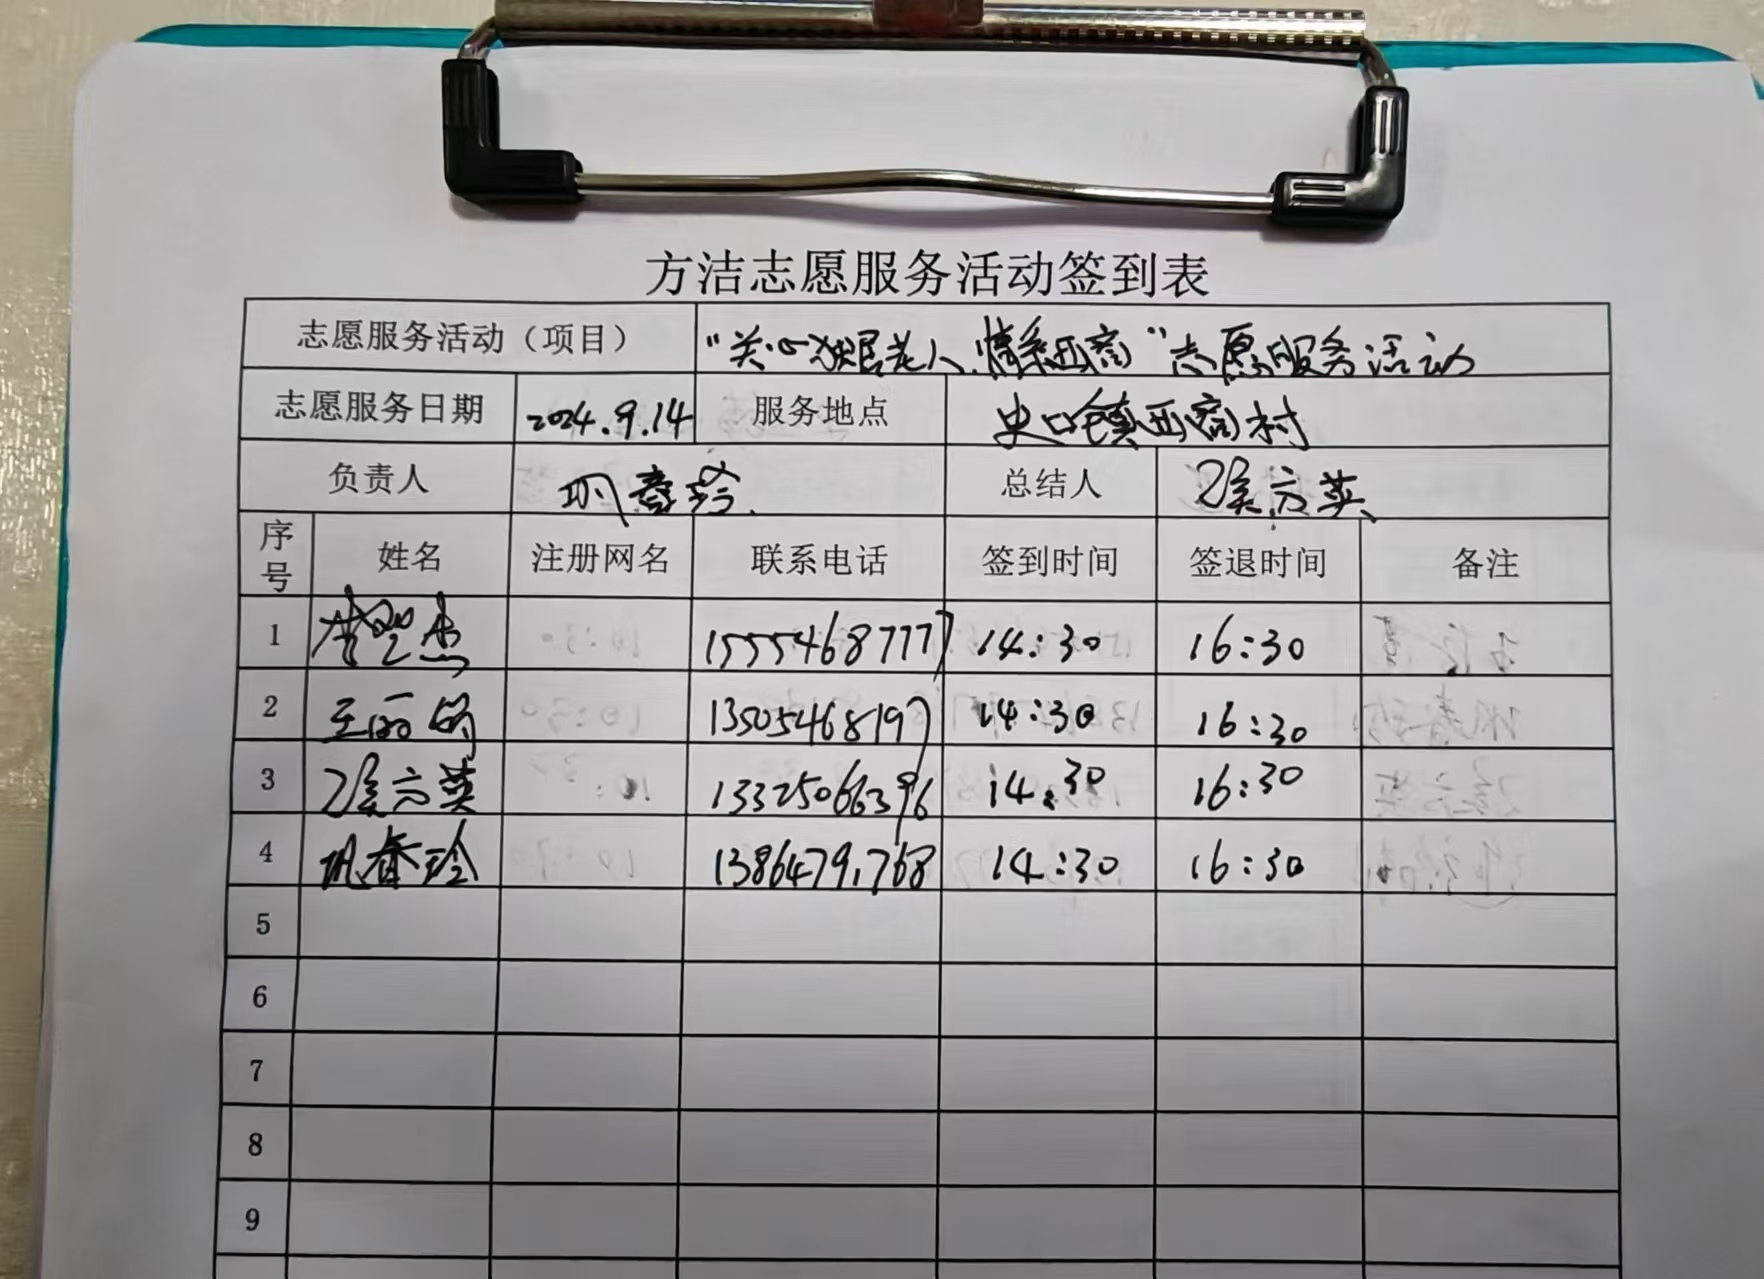 方洁志愿服务活动签到表
志愿服务活动（项目） “关心独居老人.情系西商”志愿服务活动
志愿服务日期 2024.9.14 服务地点 史口镇西商村
负责人 巩春玲 总结人 侯六英
序号 姓名 注册网名 联系电话 签到时间 签退时间 备注
1 杰 15554687777 14:30 16:30
2 王丽娟 13505468197 14:30 16:30
3 侯六英 13325066396 14:30 16:30
4 巩春玲 13864791768 14:30 16:30
5
6
7
8
9